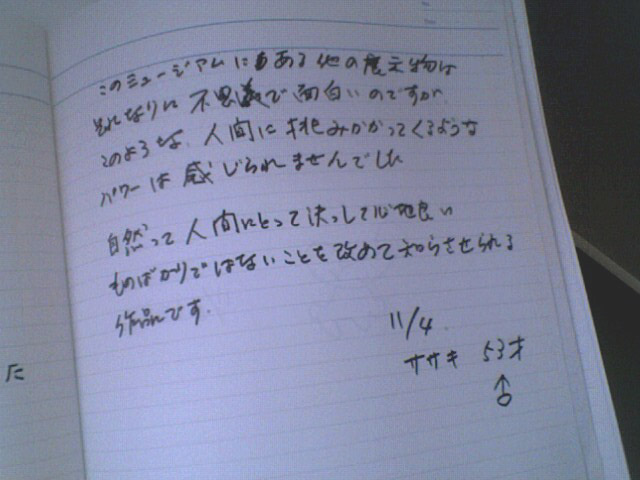 このミュージアムにもある他の展示物は
それなりに不思議で面白いのですが、
このような、人間に挑みかかってくるような
パワーは感じられませんでした
自然って人間にとって決して心地良い
ものばかりではないことを改めて知らさせられる
作品です。
11/4
ササキ 53才
♂
た